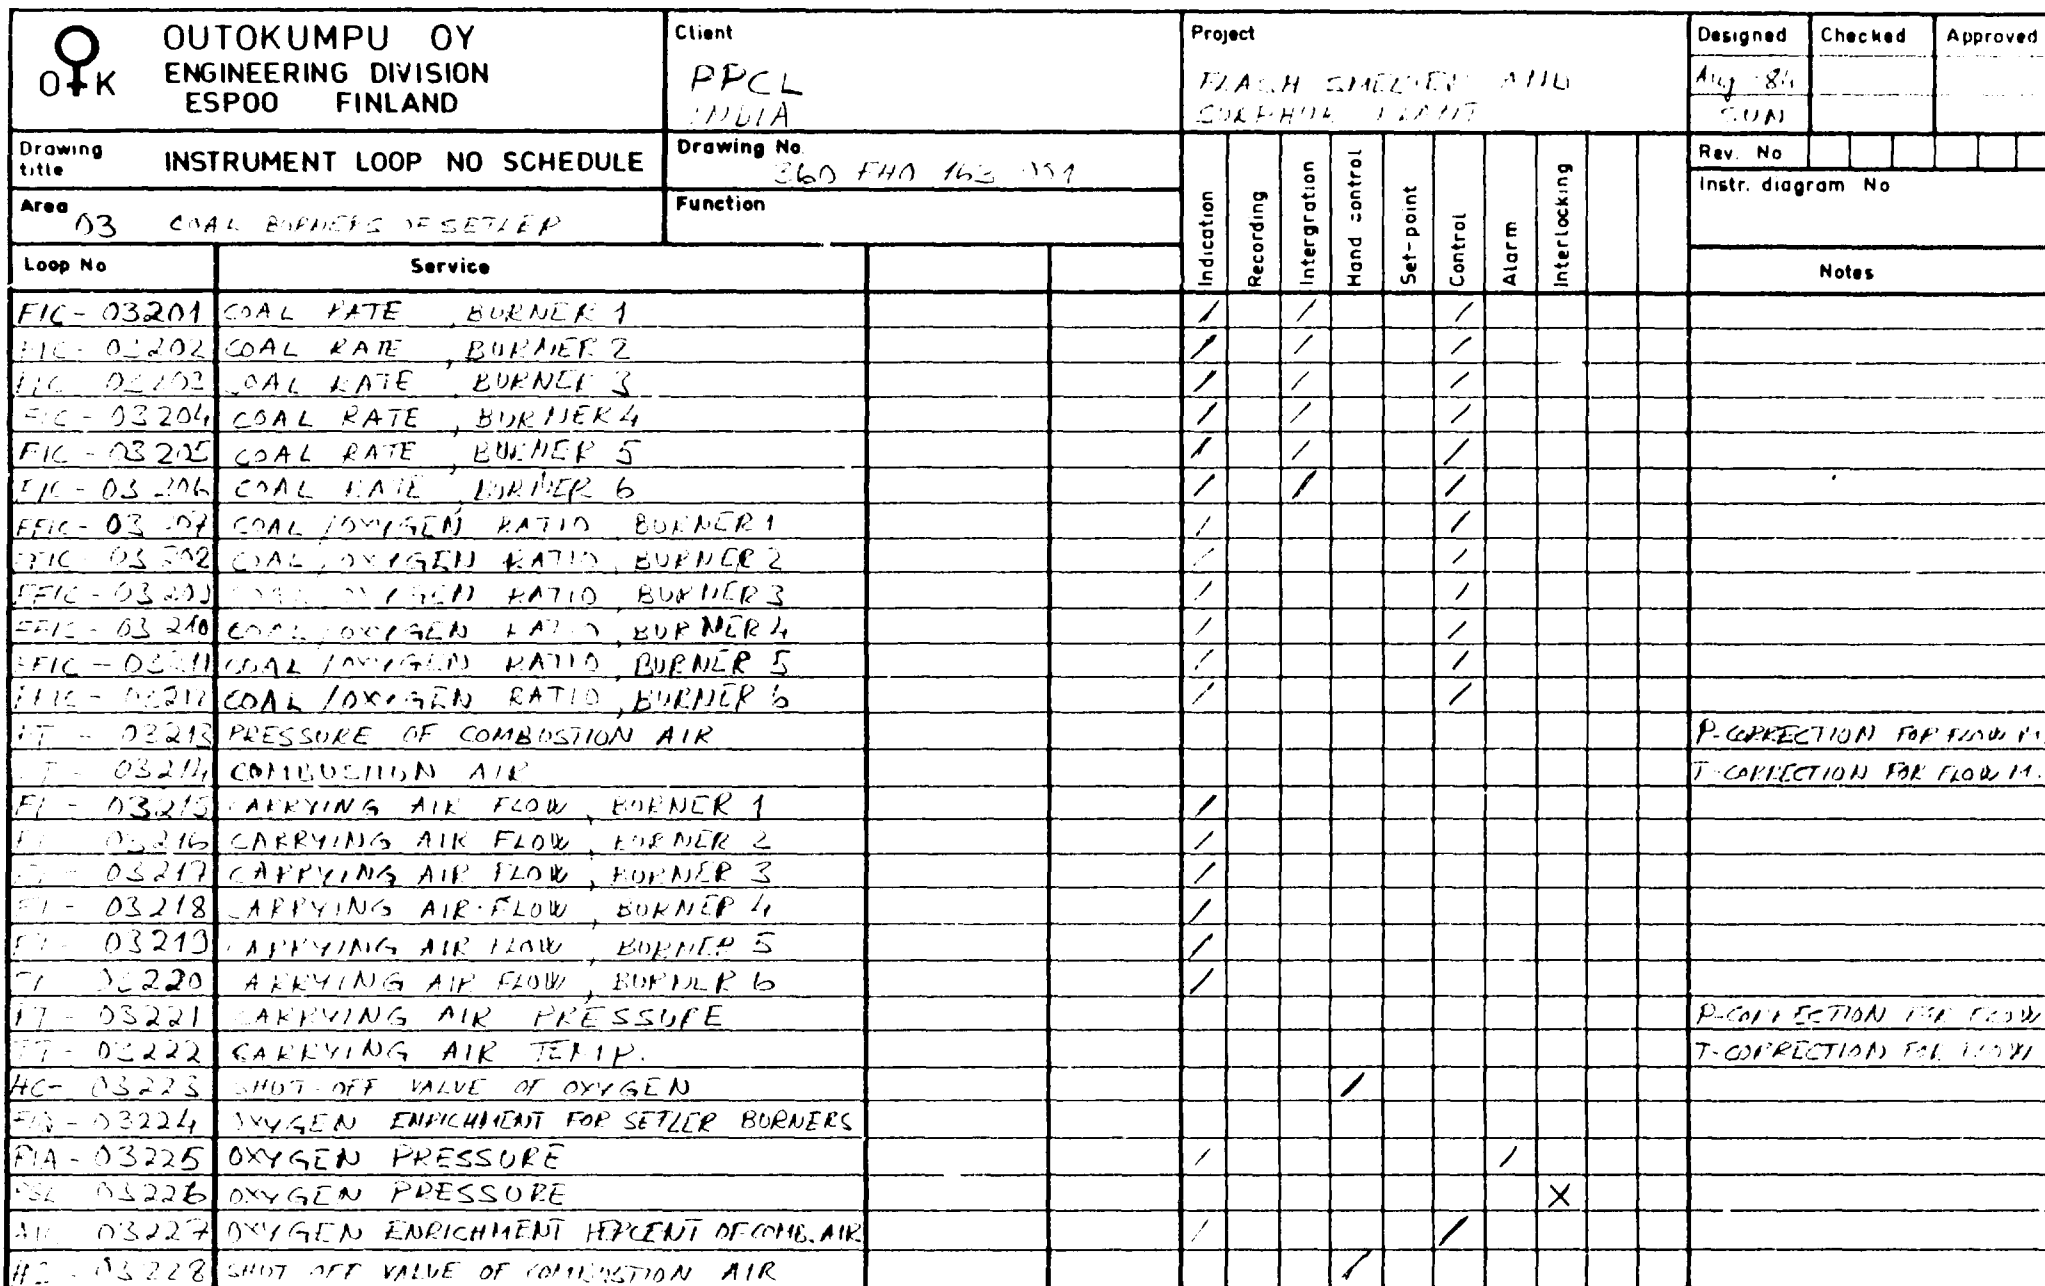 OUTOKUMPU OY
ENGINEERING DIVISION
ESPOO FINLAND
O K
Client
PPCL
INDIA
Project
FLASH SMELTER AND
PLANT
Designed Checked Approved
Aug -84
SUN
Drawing title INSTRUMENT LOOP NO SCHEDULE
Drawing No.
360 FHD 163
Rev. No
Instr. diagram No
Area 03 COAL BURNERS OF SETLER
Function
Indication
Recording
Intergration
Hand control
Set-point
Control
Alarm
Interlocking
Loop No Service Notes
FIC - 03201 COAL RATE , BURNER 1 / / /
FIC - 03202 COAL RATE , BURNER 2 / / /
FIC 03203 COAL RATE BURNER 3 / / /
FIC - 03204 COAL RATE , BURNER 4 / / /
FIC - 03205 COAL RATE , BURNER 5 / / /
FIC - 03206 COAL RATE , BURNER 6 / / /
FFIC - 03207 COAL /OXYGEN RATIO BURNER 1 / /
FFIC - 03202 COAL / OXYGEN RATIO, BURNER 2 / /
FFIC - 03209 OXYGEN RATIO, BURNER 3 / /
FFIC - 03210 COAL /OXYGEN RATIO, BURNER 4 / /
FFIC - 03211 COAL /OXYGEN RATIO, BURNER 5 / /
FFIC - 03212 COAL /OXYGEN RATIO, BURNER 6 / /
PT - 03213 PRESSURE OF COMBUSTION AIR P-CORRECTION FOR FLOW M.
TT - 03214 COMBUSTION AIR T-CORRECTION FOR FLOW M.
FI - 03215 CARRYING AIR FLOW, BURNER 1 /
FI 03216 CARRYING AIR FLOW, BURNER 2 /
FI - 03217 CARRYING AIR FLOW, BURNER 3 /
FI - 03218 CARRYING AIR FLOW, BURNER 4 /
FI - 03219 CARRYING AIR FLOW, BURNER 5 /
FI 03220 CARRYING AIR FLOW, BURNER 6 /
PT - 03221 CARRYING AIR PRESSURE P-CORRECTION FOR FLOW
TT - 03222 CARRYING AIR TEMP. T-CORRECTION FOR FLOW
HC - 03223 SHUT-OFF VALVE OF OXYGEN /
03224 OXYGEN ENRICHMENT FOR SETLER BURNERS
PIA - 03225 OXYGEN PRESSURE / /
03226 OXYGEN PRESSURE X
AIC 03227 OXYGEN ENRICHMENT PERCENT OF COMB. AIR / /
03228 SHUT OFF VALVE OF COMBUSTION AIR /